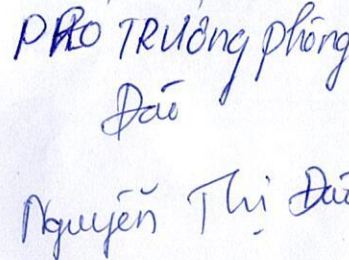 PHÓ TRƯỞNG phòng
Đào
Nguyễn Thị Đào